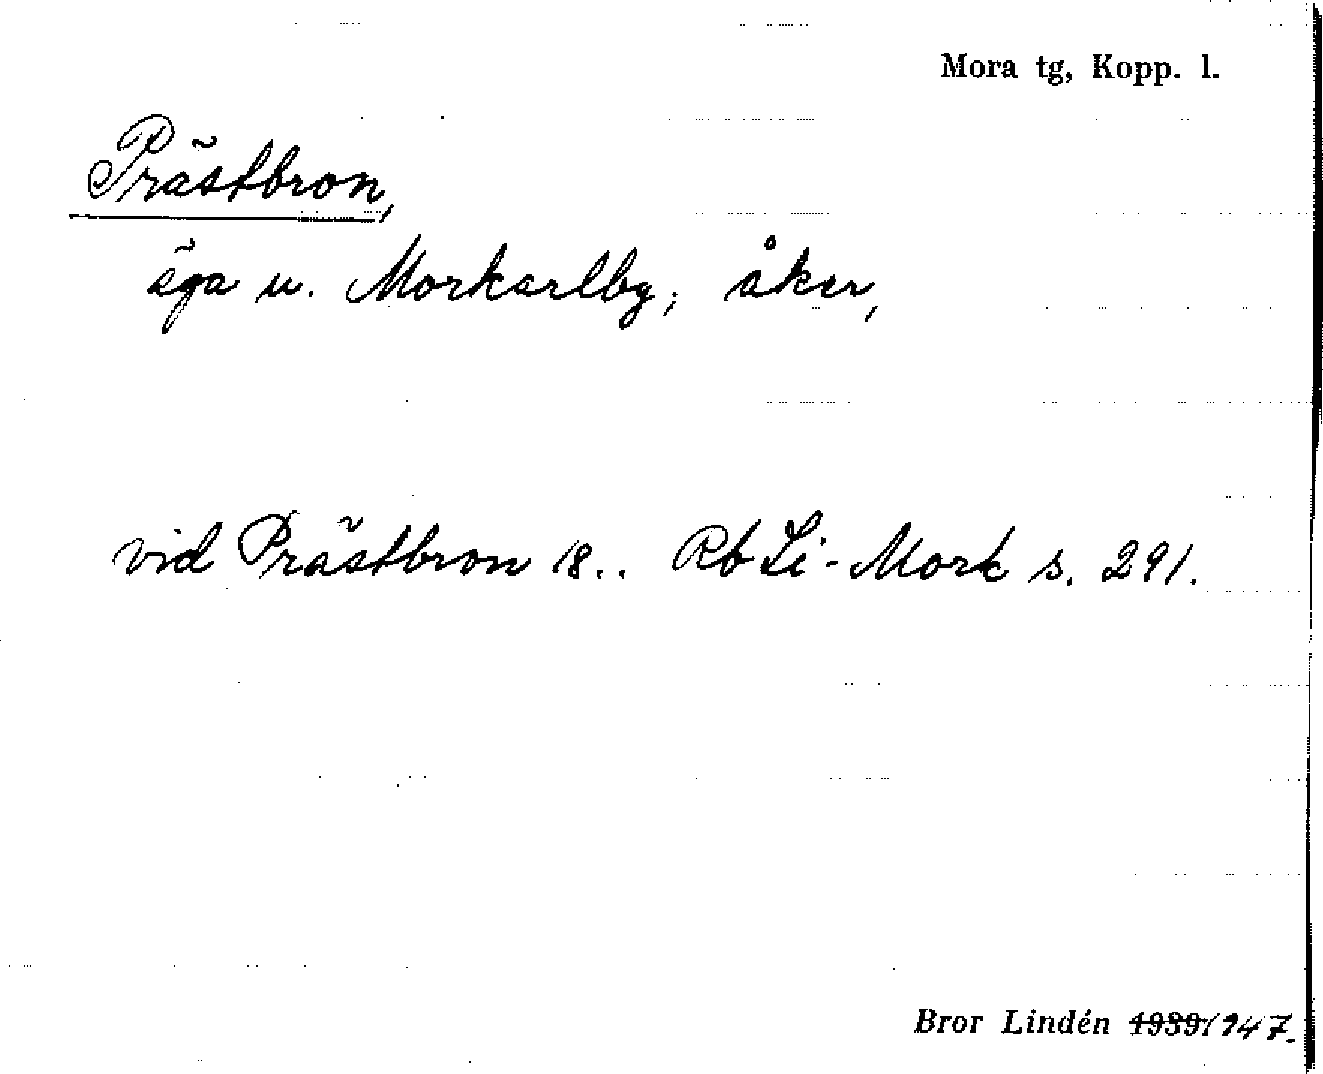 Mora tg, Kopp. l.
Prästbron,
äga u. Morkarlby; åker,
vid Prästbron 18.. Rb Li-Mork s. 291.
Bror Lindén 1939 1947.